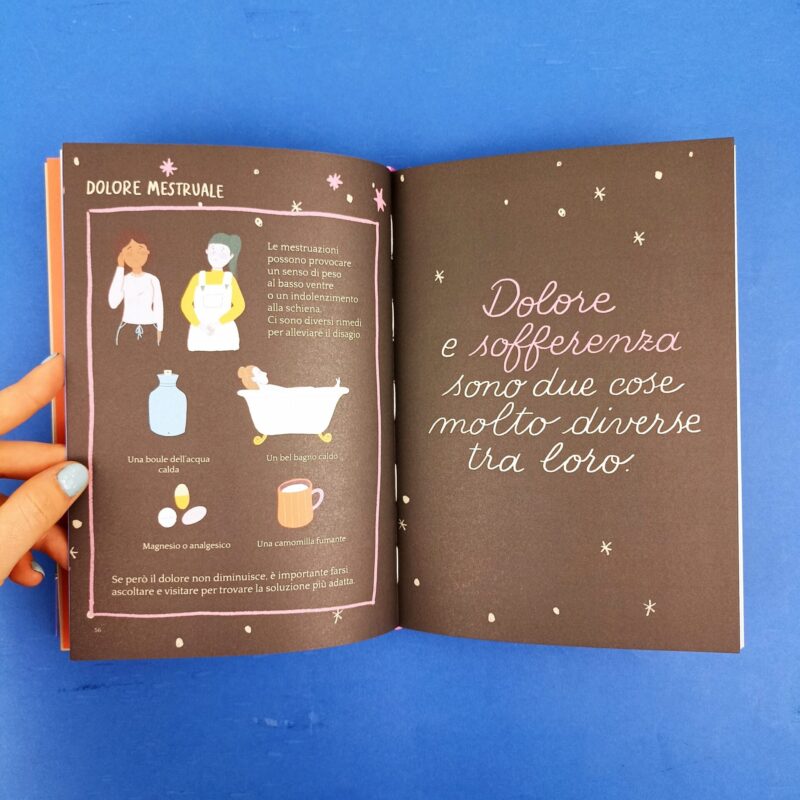 DOLORE MESTRUALE
Le mestruazioni
possono provocare
un senso di peso
al basso ventre
o un indolenzimento
alla schiena.
Ci sono diversi rimedi
per alleviare il disagio
Una boule dell'acqua
calda
Un bel bagno caldo
Magnesio o analgesico
Una camomilla fumante
Se però il dolore non diminuisce, è importante farsi
ascoltare e visitare per trovare la soluzione più adatta.
56
Dolore
e sofferenza
sono due cose
molto diverse
tra loro.